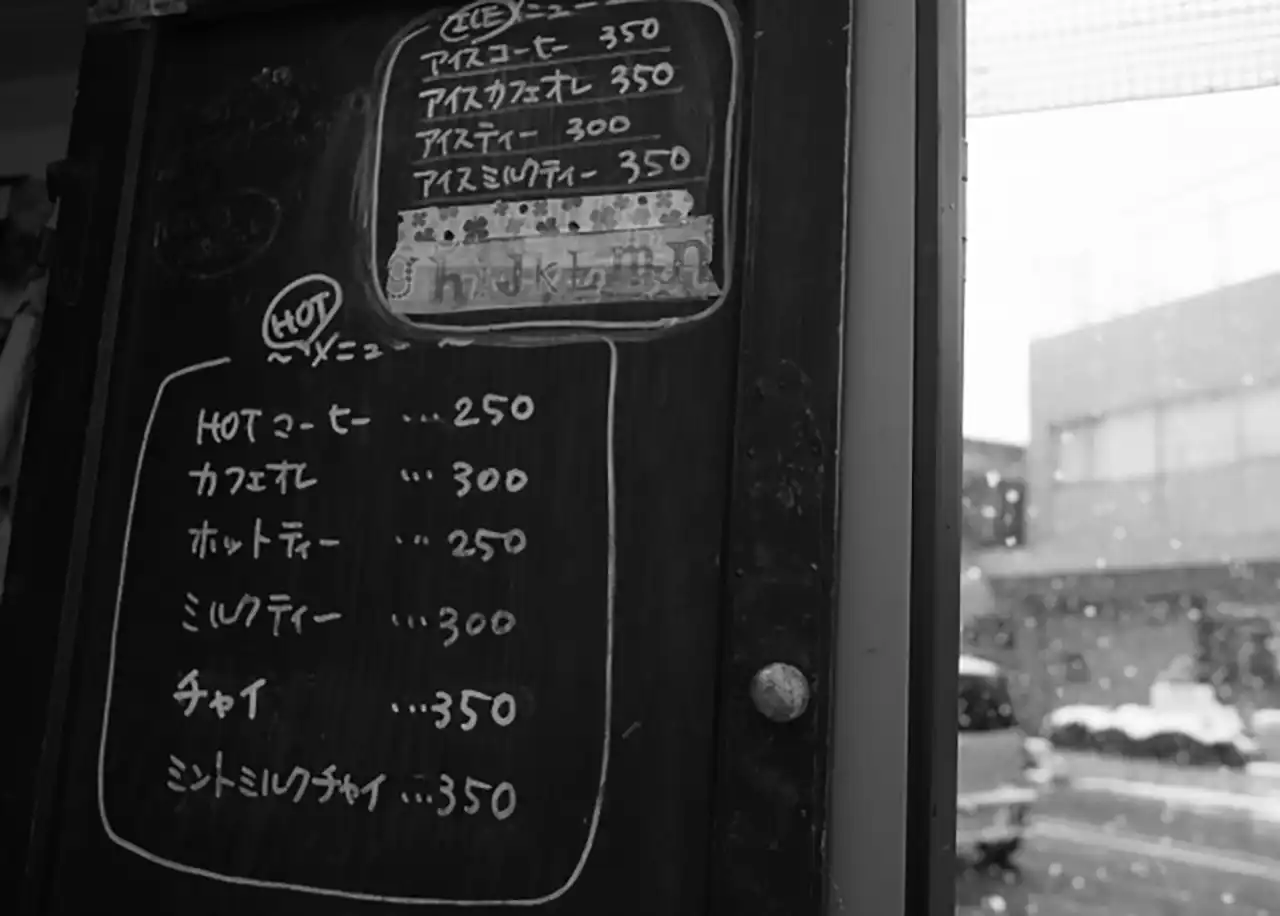 ICEメニュー
アイスコーヒー 350
アイスカフェオレ 350
アイスティー 300
アイスミルクティー 350
ghijkLmn
HOT
~メニュー~
HOTコーヒー …250
カフェオレ …300
ホットティー …250
ミルクティー …300
チャイ …350
ミントミルクチャイ …350